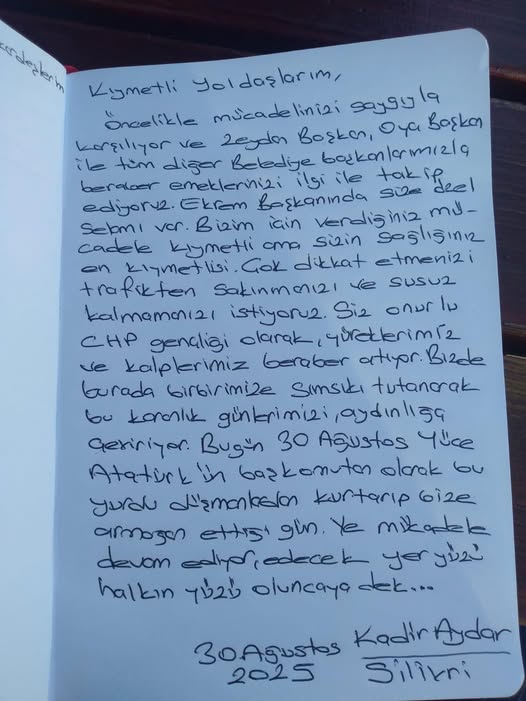 kardeşlerim
Kıymetli Yoldaşlarım,
Öncelikle mücadelinizi saygıyla
karşılıyor ve Zeydan Başkan, Oya Başkan
ile tüm diğer Belediye başkanlarımızla
beraber emeklerinizi ilgi ile takip
ediyoruz. Ekrem Başkanında size özel
selamı var. Bizim için verdiğiniz mü-
cadele kıymetli ama sizin sağlığınız
en kıymetlisi. Çok dikkat etmenizi
trafikten sakınmanızı ve susuz
kalmamanızı istiyoruz. Siz onurlu
CHP gençliği olarak, yüreklerimiz
ve kalplerimiz beraber atıyor. Bizde
burada birbirimize sımsıkı tutunarak
bu karanlık günlerimizi, aydınlığa
çeviriyor. Bugün 30 Ağustos Yüce
Atatürk'ün başkomutan olarak bu
yurdu düşmanlardan kurtarıp bize
armağan ettiği gün. Ve mücadele
devam ediyor, edecek yer yüzü
halkın yüzü oluncaya dek...
30 Ağustos Kadir Aydar
2025 Silivri